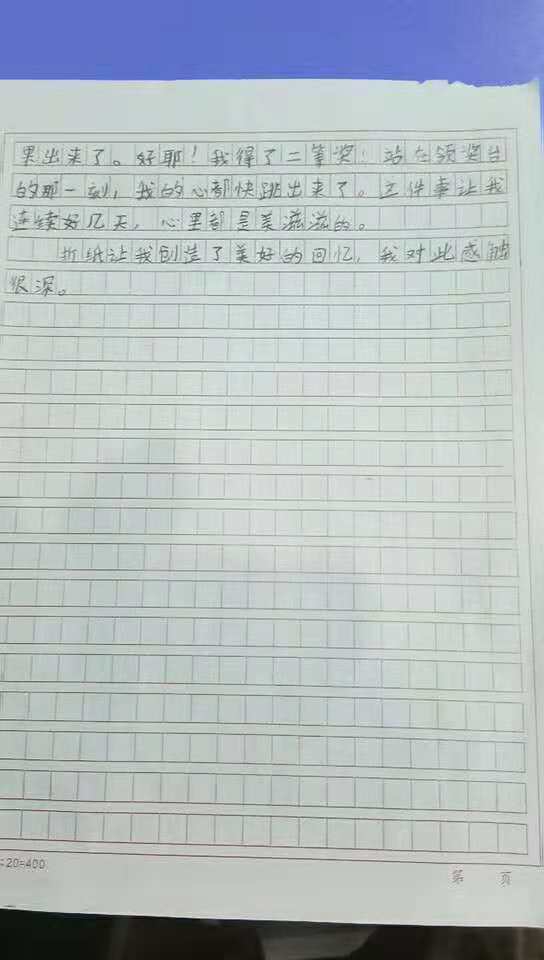 果出来了。好耶！我得了二等奖！站在领奖台
的那一刻，我的心都快跳出来了。这件事让我
连续好几天，心里都是美滋滋的。
折纸让我创造了美好的回忆，我对此感触
很深。
20=400
第 页